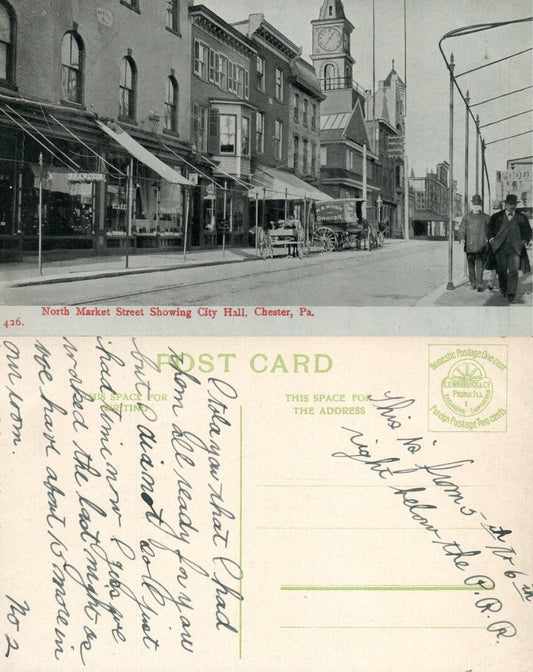 BRANCHER
GROCER
426.
North Market Street Showing City Hall. Chester, Pa.
POST CARD
THIS SPACE FOR
WRITING
THIS SPACE FOR
THE ADDRESS
Domestic Postage One cent
C.E. WHEELOCK & CO.
PEORIA ILL
Foreign Postage Two cents
I told you that I had
them all ready for you
but I did not so I just
had time now I gues we
worked the last night as
we have about 15 more in
our room.
No 2
This is from 5th to 6th
right below the P.R.R.